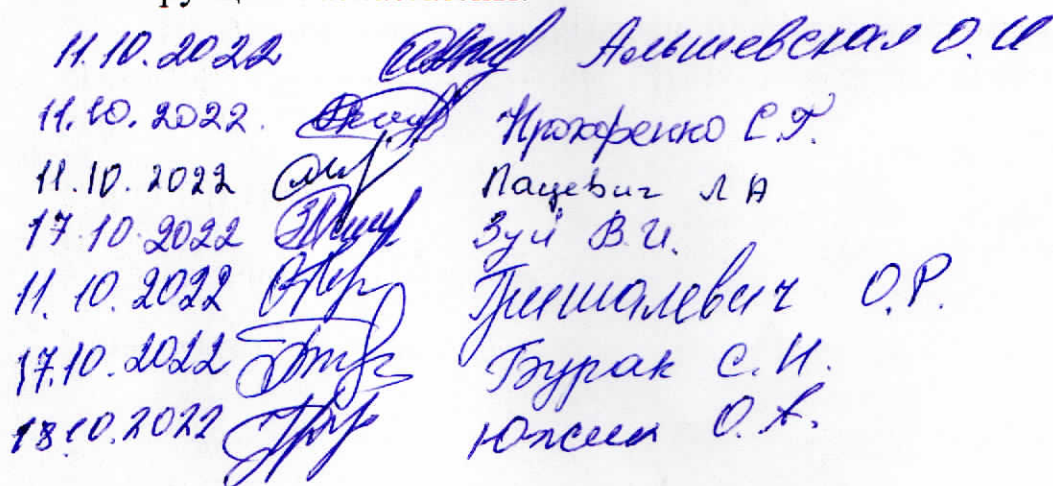 11.10.2022 Альшевская О.И
11.10.2022. Прокофенко С.Г.
11.10.2022 Пацевич Л А
17.10.2022 Зуй В.И.
11.10.2022 Гришалевич О.Р.
17.10.2022 Бурак С.И.
18.10.2022 О.А.